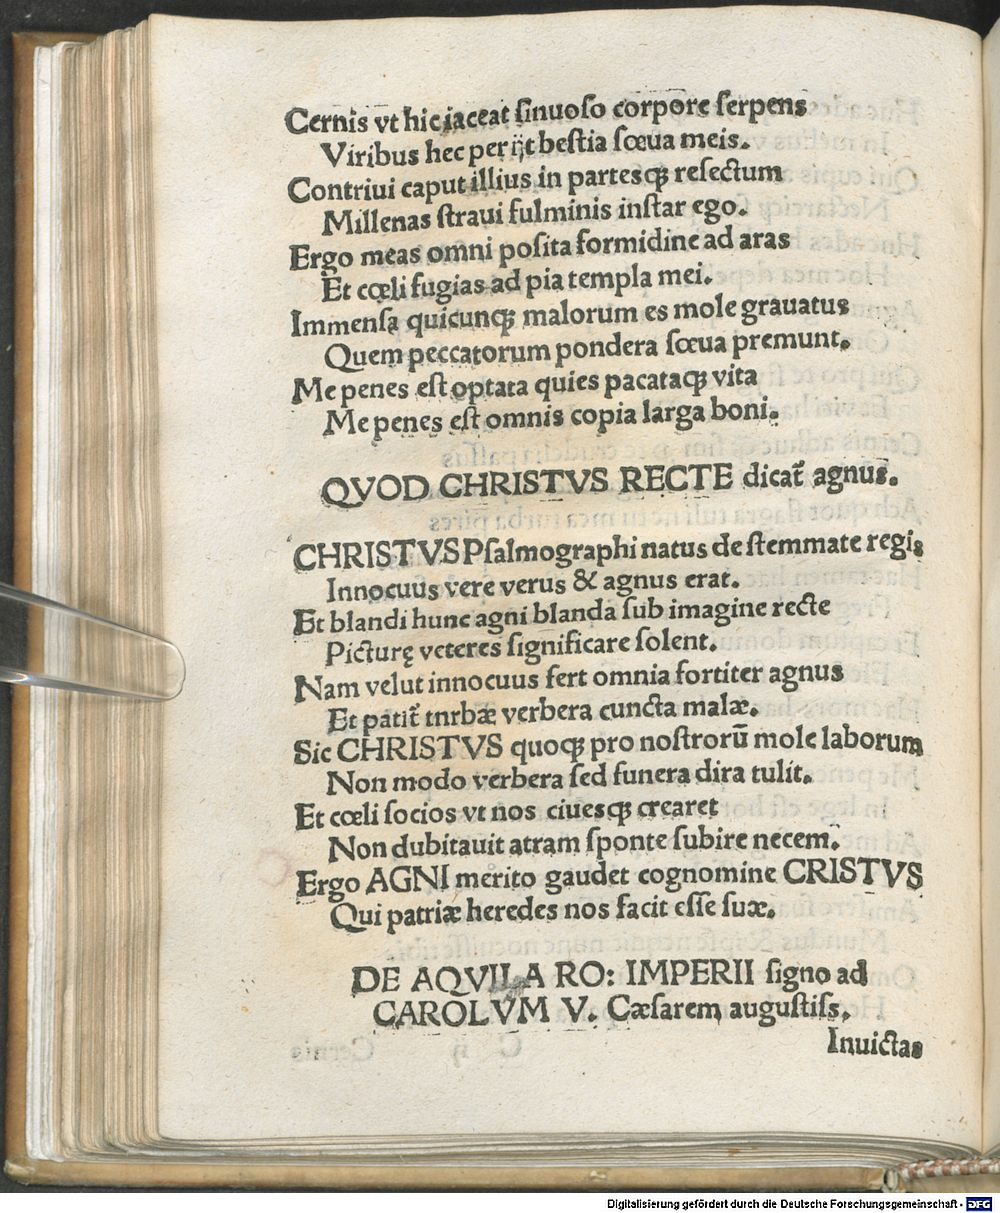 Cernis vt hic iaceat ſinuoſo corpore ſerpens
Viribus hec per ijt beſtia ſœua meis.
Contriui caput illius in partesq́ꝫ reſectum
Millenas ſtraui fulminis inſtar ego.
Ergo meas omni poſita formidine ad aras
Et cœli fugias ad pia templa mei.
Immenſa quicunqꝫ malorum es mole grauatus
Quem peccatorum pondera ſœua premunt.
Me penes eſt optata quies pacataqꝫ vita
Me penes eſt omnis copia larga boni.
QVOD CHRISTVS RECTE dicat᷑ agnus.
CHRISTVS Pſalmographi natus de ſtemmate regis
Innocuus vere verus & agnus erat.
Et blandi hunc agni blanda ſub imagine recte
Picturę veteres ſignificare ſolent.
Nam velut innocuus fert omnia fortiter agnus
Et patit᷑ tnrbæ verbera cuncta malæ.
Sic CHRISTVS quoqꝫ pro noſtrorū mole laborum
Non modo verbera ſed funera dira tulit.
Et cœli ſocios vt nos ciuesqꝫ crearet
Non dubitauit atram ſponte ſubire necem.
Ergo AGNI merito gaudet cognomine CRISTVS
Qui patriæ heredes nos facit eſſe ſuæ.
DE AQVILA RO: IMPERII ſigno ad
CAROLVM V. Cæſarem auguſtiſs.
Inuictas
Digitalisierung gefördert durch die Deutsche Forschungsgemeinschaft - DFG